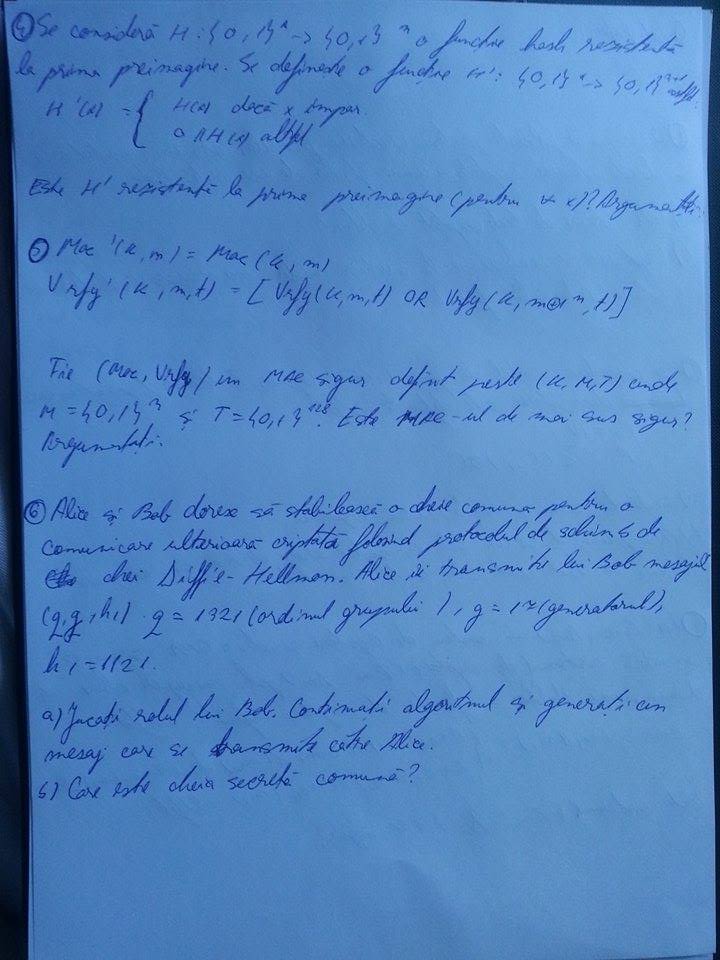 ④ Se consideră H : {0,1}* -> {0,1}^n o funcție hash rezistentă
la prima preimagine. Se definește o funcție H' : {0,1}* -> {0,1}^n+1 astfel
H'(x) = { H(x) dacă x impar.
0 || H(x) altfel
Este H' rezistentă la prima preimagine (pentru ∀ x)? Argumentați.
⑤ Mac'(k, m) = Mac(k, m)
Vrfy'(k, m, t) = [Vrfy(k, m, t) OR Vrfy(k, m⊕1^n, t)]
Fie (Mac, Vrfy) un MAC sigur definit peste (K, M, T) unde
M = {0,1}^n și T = {0,1}^128. Este MAC-ul de mai sus sigur?
Argumentați.
⑥ Alice și Bob doresc să stabilească o cheie comună pentru o
comunicare ulterioară criptată folosind protocolul de schimb de
chei Diffie-Hellman. Alice îi transmite lui Bob mesajul
(q, g, h1). q = 1321 (ordinul grupului), g = 17 (generatorul),
h1 = 1121.
a) Jucați rolul lui Bob. Continuați algoritmul și generați un
mesaj care se transmite către Alice.
b) Care este cheia secretă comună?